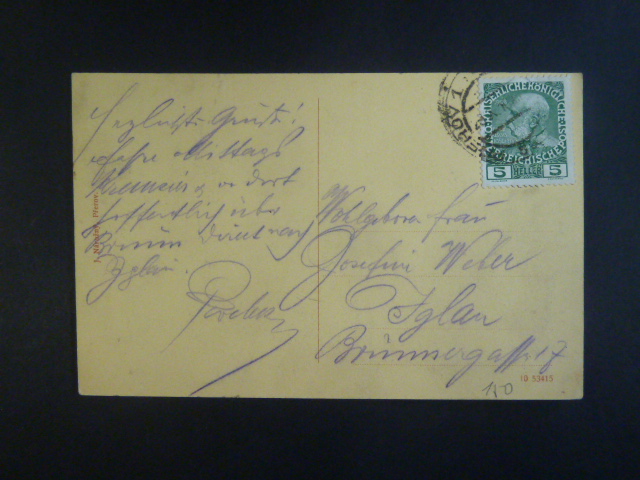 Herzlichste Grüße!
fahre Mittags
u. von dort
hoffentlich über
Brünn direct nach
Iglau.
Wohlgeboren Frau
Josefine Weber
Iglau
Brünnergasse 7
KAISERLICHE KÖNIGLICHE ÖSTERREICHISCHE
5 HELLER 5
10 53415
180